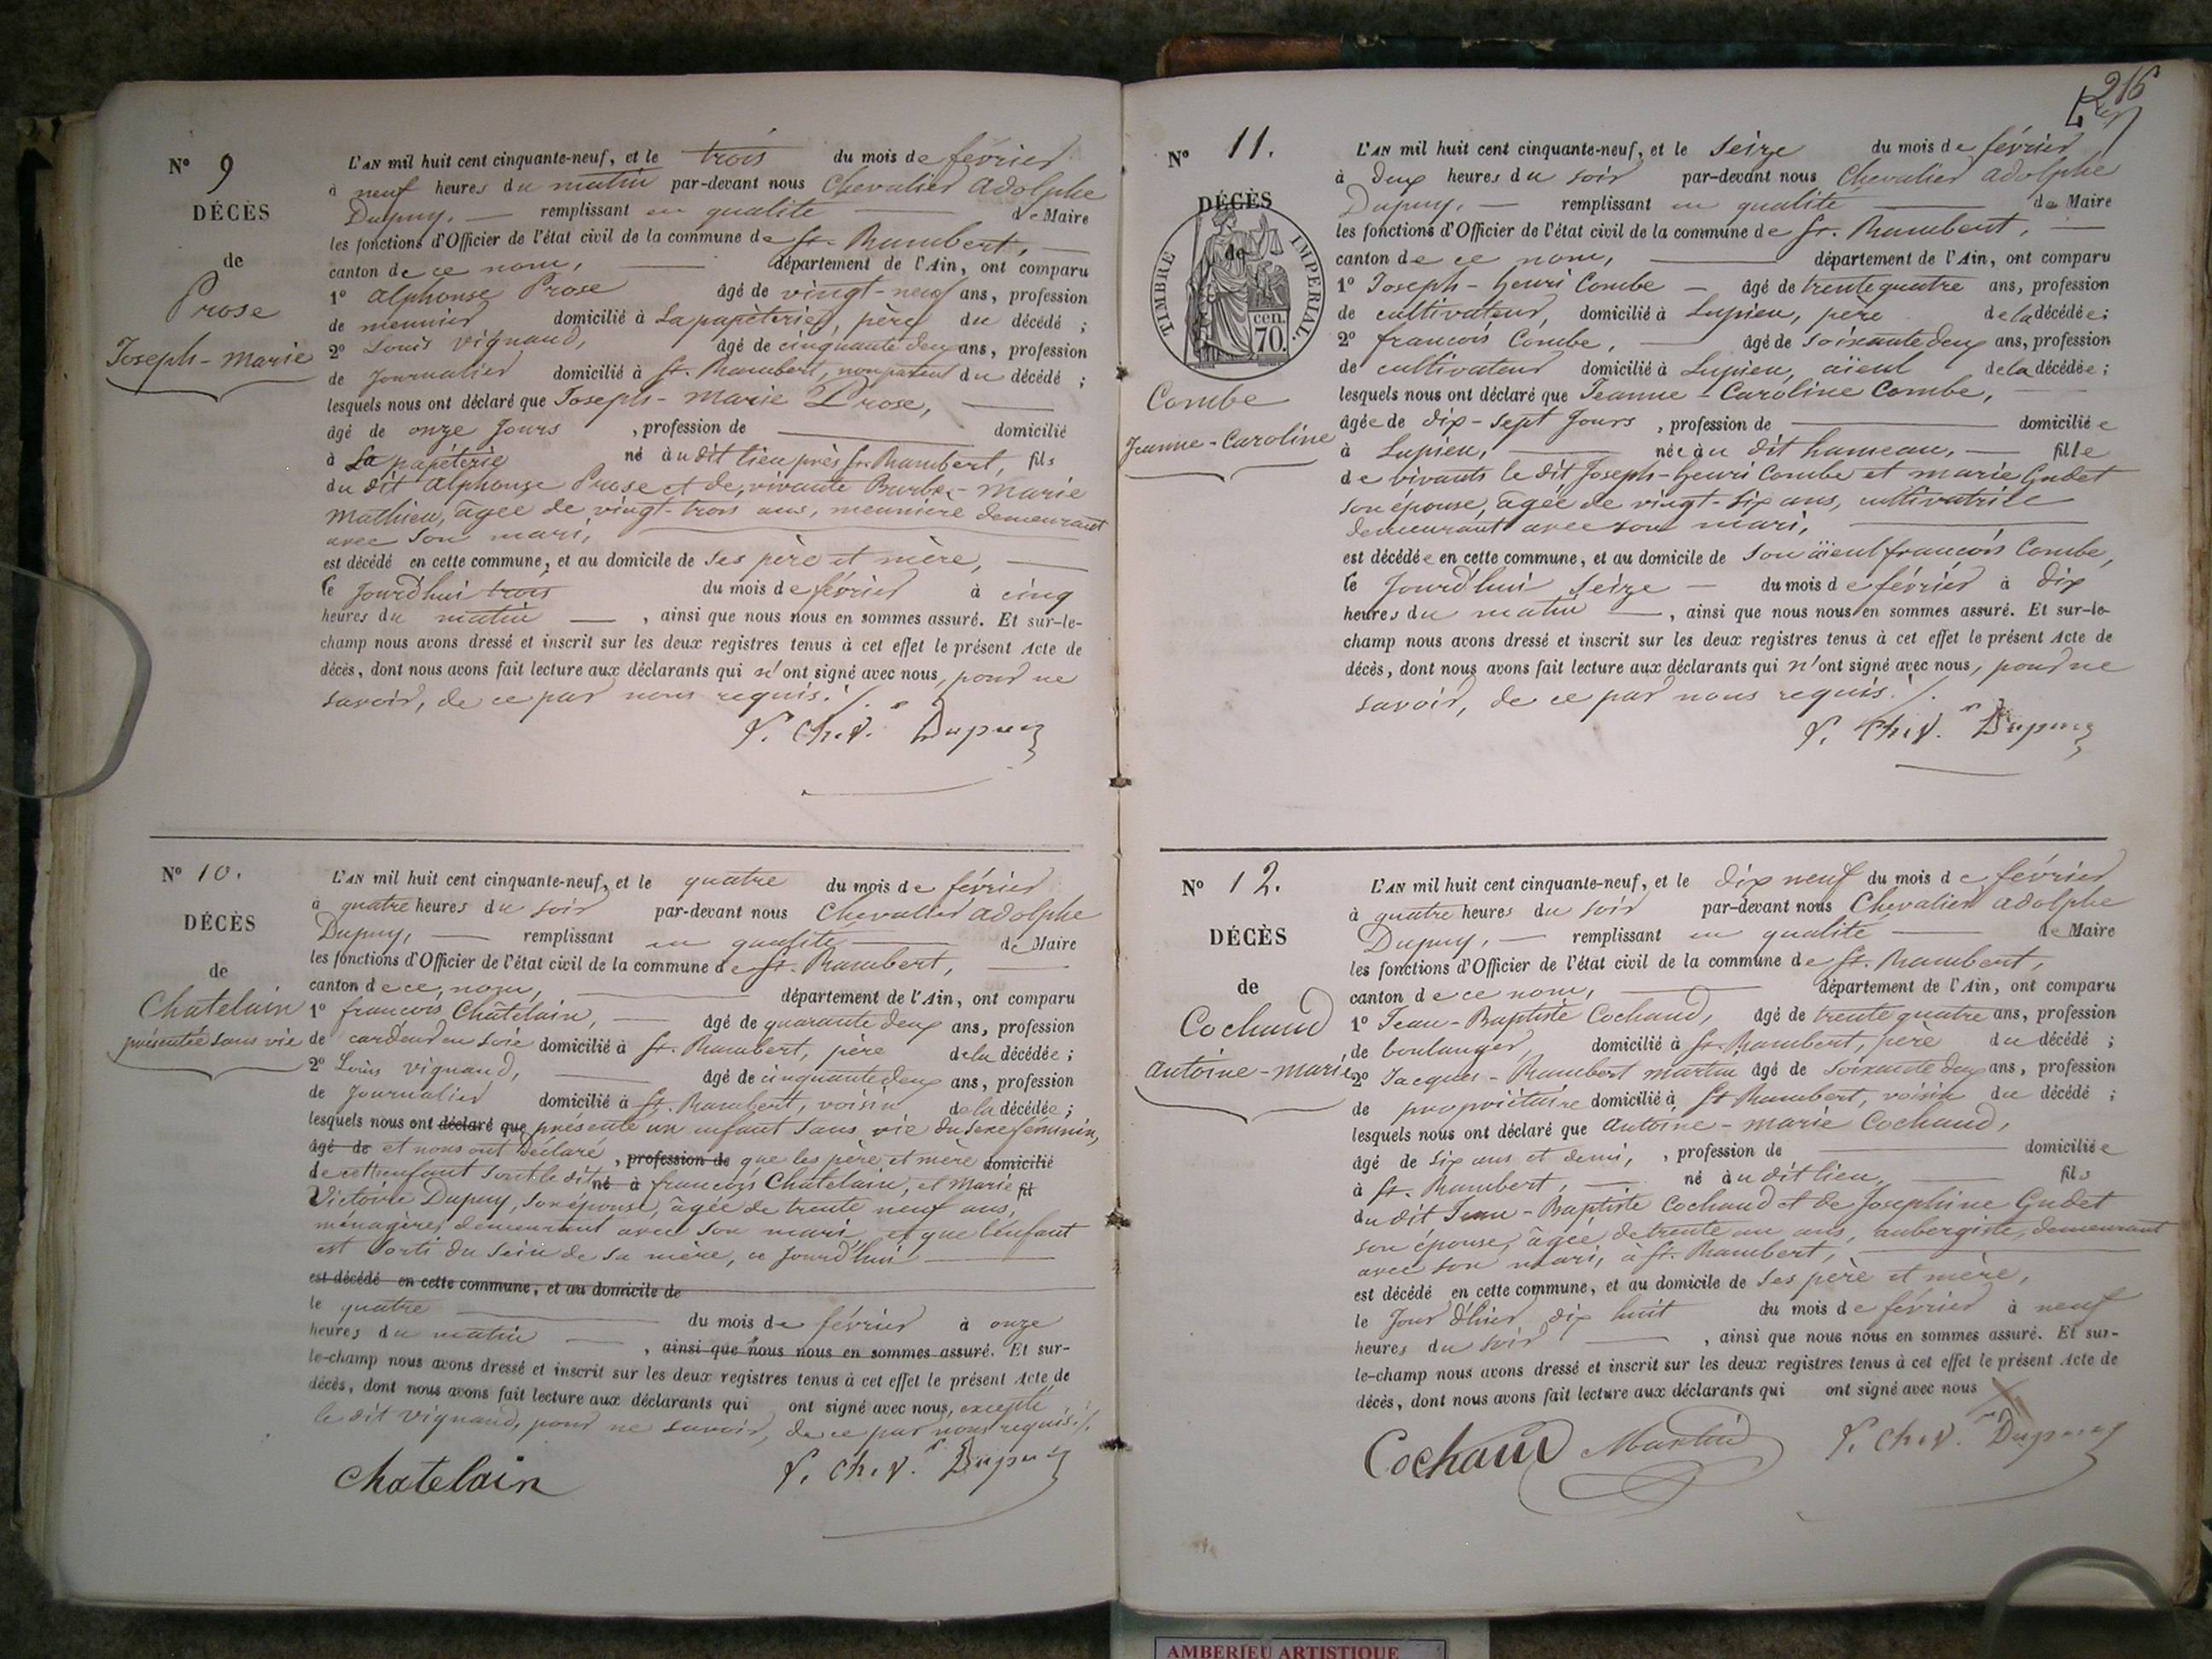 N° 9
DÉCÈS
de
Prose
Joseph-Marie
L'AN mil huit cent cinquante-neuf, et le trois du mois de février
à neuf heures du matin par-devant nous Chevalier Adolphe
Dupuy, remplissant en qualité de Maire
les fonctions d'Officier de l'état civil de la commune de St. Rambert,
canton de ce nom, département de l'Ain, ont comparu
1° Alphonse Prose âgé de vingt-neuf ans, profession
de meunier domicilié à La papèterie, père du décédé ;
2° Louis Vignaud, âgé de cinquante deux ans, profession
de Journalier domicilié à St. Rambert, non parent du décédé ;
lesquels nous ont déclaré que Joseph-Marie Prose,
âgé de onze Jours , profession de domicilié
à La papéterie né au dit lieu près St. Rambert, fils
du dit Alphonse Prose et de, vivante Marie
Mathieu, âgée de vingt-trois ans, meunière demeurant
avec son mari,
est décédé en cette commune, et au domicile de ses père et mère,
le Jourd'hui trois du mois de février à cinq
heures du matin , ainsi que nous nous en sommes assuré. Et sur-le-
champ nous avons dressé et inscrit sur les deux registres tenus à cet effet le présent Acte de
décès, dont nous avons fait lecture aux déclarants qui n'ont signé avec nous, pour ne
savoir, de ce par nous requis ./.
Dupuy
N° 10.
DÉCÈS
de
Chatelain
présentée sans vie
L'AN mil huit cent cinquante-neuf, et le quatre du mois de février
à quatre heures du soir par-devant nous Chevalier Adolphe
Dupuy, remplissant en qualité de Maire
les fonctions d'Officier de l'état civil de la commune de St. Rambert,
canton de ce nom, département de l'Ain, ont comparu
1° françois Châtelain, âgé de quarante deux ans, profession
de cardeur en soie domicilié à St. Rambert, père de la décédée ;
2° Louis Vignaud, âgé de cinquante deux ans, profession
de Journalier domicilié à St. Rambert, voisin de la décédée ;
lesquels nous ont déclaré que présenté un enfant sans vie du sexe féminin,
âgé de et nous ont déclaré , profession de que les père et mère domicilié
de cet enfant sont le dit né à françois Chatelain, et Marie fil
Victoire Dupuy, son épouse, âgée de trente neuf ans,
ménagère, demeurant avec son mari, et que l'enfant
est sorti du sein de sa mère, ce Jourd'hui
est décédé en cette commune, et au domicile de
le quatre du mois de février à onze
heures du matin , ainsi que nous nous en sommes assuré. Et sur-
le-champ nous avons dressé et inscrit sur les deux registres tenus à cet effet le présent Acte de
décès, dont nous avons fait lecture aux déclarants qui ont signé avec nous, excepté
le dit Vignaud, pour ne savoir, de ce par nous requis ./.
Chatelain Dupuy
216
N° 11.
DÉCÈS
de
TIMBRE IMPERIAL.
cen.
70.
Combe
Jeanne-Caroline
L'AN mil huit cent cinquante-neuf, et le Seize du mois de février
à Deux heures du soir par-devant nous Chevalier Adolphe
Dupuy, remplissant en qualité de Maire
les fonctions d'Officier de l'état civil de la commune de St. Rambert,
canton de ce nom, département de l'Ain, ont comparu
1° Joseph-henri Combe âgé de trente quatre ans, profession
de cultivateur, domicilié à Lupieu, père de la décédée ;
2° françois Combe, âgé de soixante deux ans, profession
de cultivateur domicilié à Lupieu, aïeul de la décédée ;
lesquels nous ont déclaré que Jeanne-Caroline Combe,
âgée de dix-sept Jours , profession de domiciliée
à Lupieu, née au dit hameau, fille
de vivants le dit Joseph-henri Combe et Marie Gudet
son épouse, âgée de vingt-six ans, cultivatrice
demeurant avec son mari,
est décédée en cette commune, et au domicile de son aïeul françois Combe,
le Jourd'hui Seize du mois de février à dix
heures du matin , ainsi que nous nous en sommes assuré. Et sur-le-
champ nous avons dressé et inscrit sur les deux registres tenus à cet effet le présent Acte de
décès, dont nous avons fait lecture aux déclarants qui n'ont signé avec nous, pour ne
savoir, de ce par nous requis ./.
Dupuy
N° 12.
DÉCÈS
de
Cochaud
Antoine-Marie
L'AN mil huit cent cinquante-neuf, et le dix neuf du mois de février
à quatre heures du soir par-devant nous Chevalier Adolphe
Dupuy, remplissant en qualité de Maire
les fonctions d'Officier de l'état civil de la commune de St. Rambert,
canton de ce nom, département de l'Ain, ont comparu
1° Jean-Baptiste Cochaud, âgé de trente quatre ans, profession
de boulanger, domicilié à St. Rambert, père du décédé ;
2° Jacques-Rambert Martin âgé de soixante deux ans, profession
de propriétaire domicilié à St Rambert, voisin du décédé ;
lesquels nous ont déclaré que Antoine-Marie Cochaud,
âgé de six ans et demi, , profession de domicilié
à St. Rambert, né au dit lieu, fils
du dit Jean-Baptiste Cochaud et de Josephine Gudet
son épouse, âgée de trente un ans, aubergiste, demeurant
avec son mari, à St. Rambert,
est décédé en cette commune, et au domicile de ses père et mère,
le Jour d'hier dix huit du mois de février à neuf
heures du soir , ainsi que nous nous en sommes assuré. Et sur-
le-champ nous avons dressé et inscrit sur les deux registres tenus à cet effet le présent Acte de
décès, dont nous avons fait lecture aux déclarants qui ont signé avec nous
Cochaud Martin Dupuy
AMBERIEU ARTISTIQUE